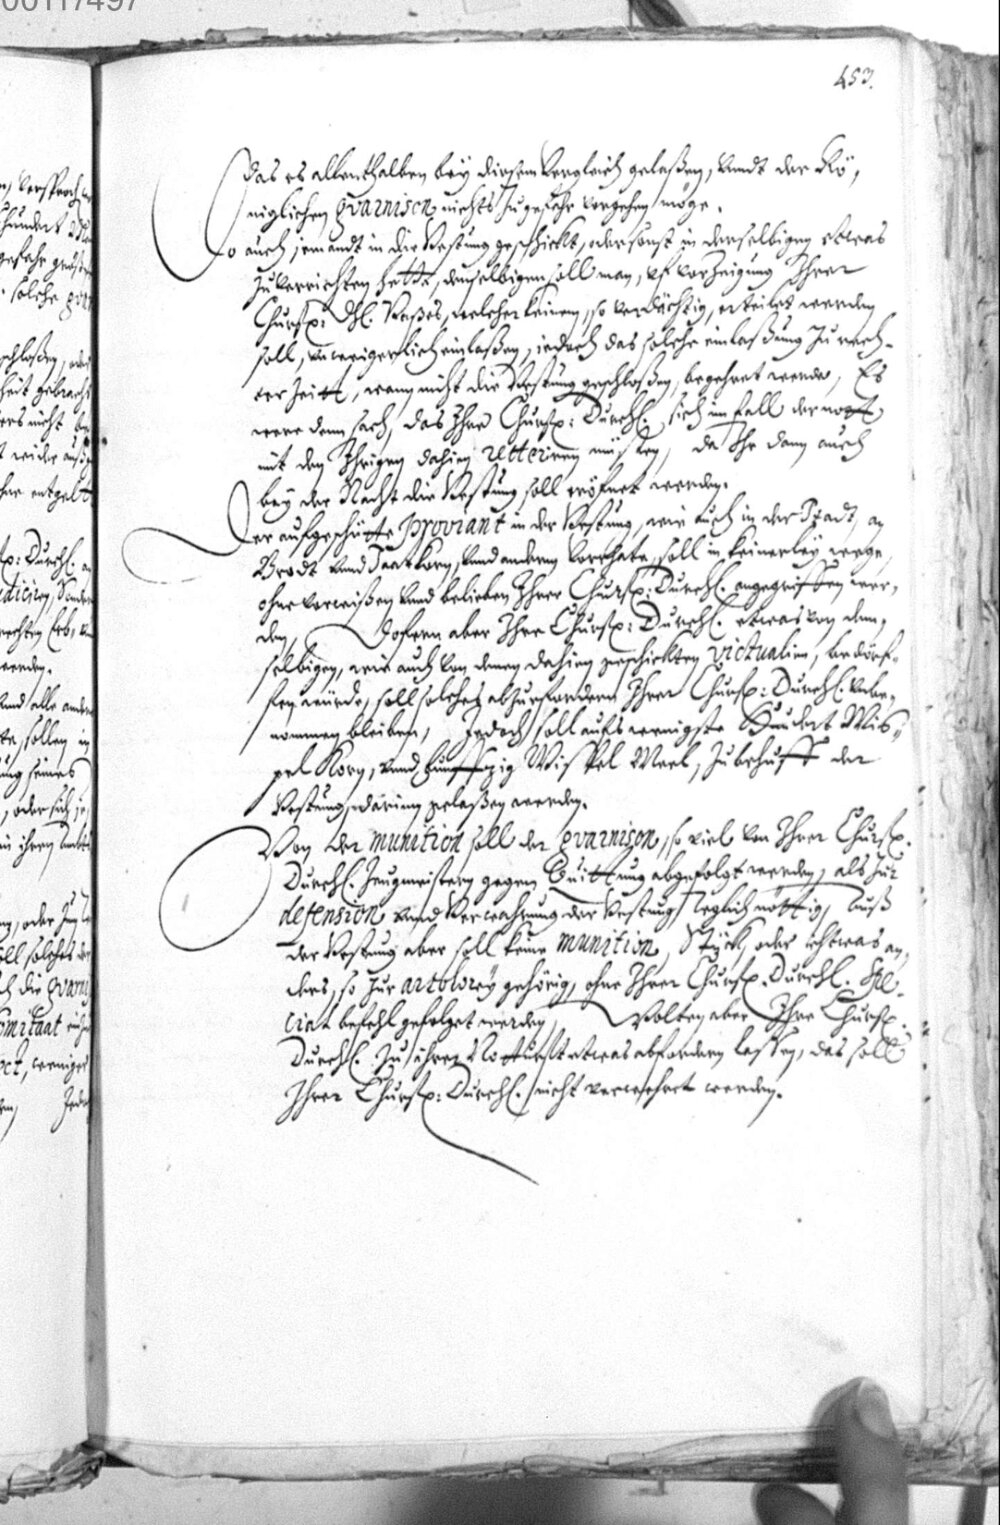 00117497
453.
das es allenthalben bey diesem Vergleich gelaßen, Vndt der Kö,
niglichen gvarnison nichts zu gefahr Vorgehen möge.
So auch jemandt in die Vestung geschickt, oder sonst in derselbigen etwas
zu verrichten hette, denselbigen soll man, vf vorzeigung Ihrer
Churfr: Dhl. Paßes, welcher keinem, so verdächtig, erteilet werden
soll, vnweigerlich einlaßen, jedoch das solche einlaßung zu rech-
ter Zeitt, wann nicht die Vestung geschloßen, begehret werde, Es
were dann sach, das Ihre Churfr: Durchl. sich im fall der nott
mit den Ihrigen dahin retteriren müsten, da Ihr dann auch
bey der Nacht die Vestung soll eröfnet werden.
Der aufgeschütte proviant in der Vestung, wie auch in der Stadt, an
Brodt Vnd Saatkorn, Vnd anderm Vorrhate, soll in keinerley wege,
ohne vorwißen Vnd belieben Ihrer Churfr: Durchl. angegriffen wer,
den, Dofern aber Ihre Churfr: Durchl. etwas von dem,
selbigen, wie auch von denen dahin geschickten victualien, bedörf-
fen würde, soll solches abzurfordern Ihrer Churfr: Durchl. Vnbe,
nommen bleiben, Jedoch soll aufs wenigste Hundert Wis,
pel Korn, Vnd funffzig Wispel Meel, zu behuff der
Vestung, darinn gelaßen werden.
Von der munition soll der gvarnison, so viel von Ihrer Churfr.
Durchl. Zeugmeistern gegen Quittung abgefolgt werden, als zur
defension vnnd Verwahrung der Vestung teglich nöttig, Auß
der Vestung aber soll keine munition, Stück, oder ichtwas an,
ders, so zur artolorey gehörig, ohne Ihrer Churfr. Durchl. Spe-
cial befehl gefolget werden, Wolten aber Ihre Churfr.
Durchl. zu ihrer Notturft etwas abfordern lassen, das soll
Ihrer Churfr: Durchl. nicht verwehrt werden.